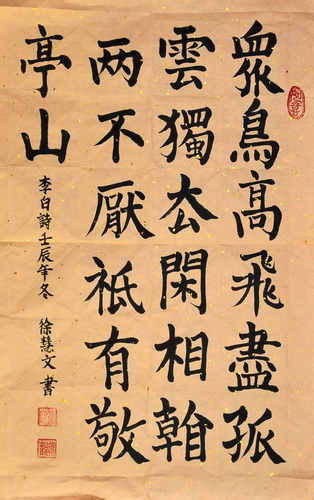 衆鳥高飛盡孤
雲獨厺閑相看
两不厭祇有敬
亭山
李白詩壬辰年冬 徐慧文書